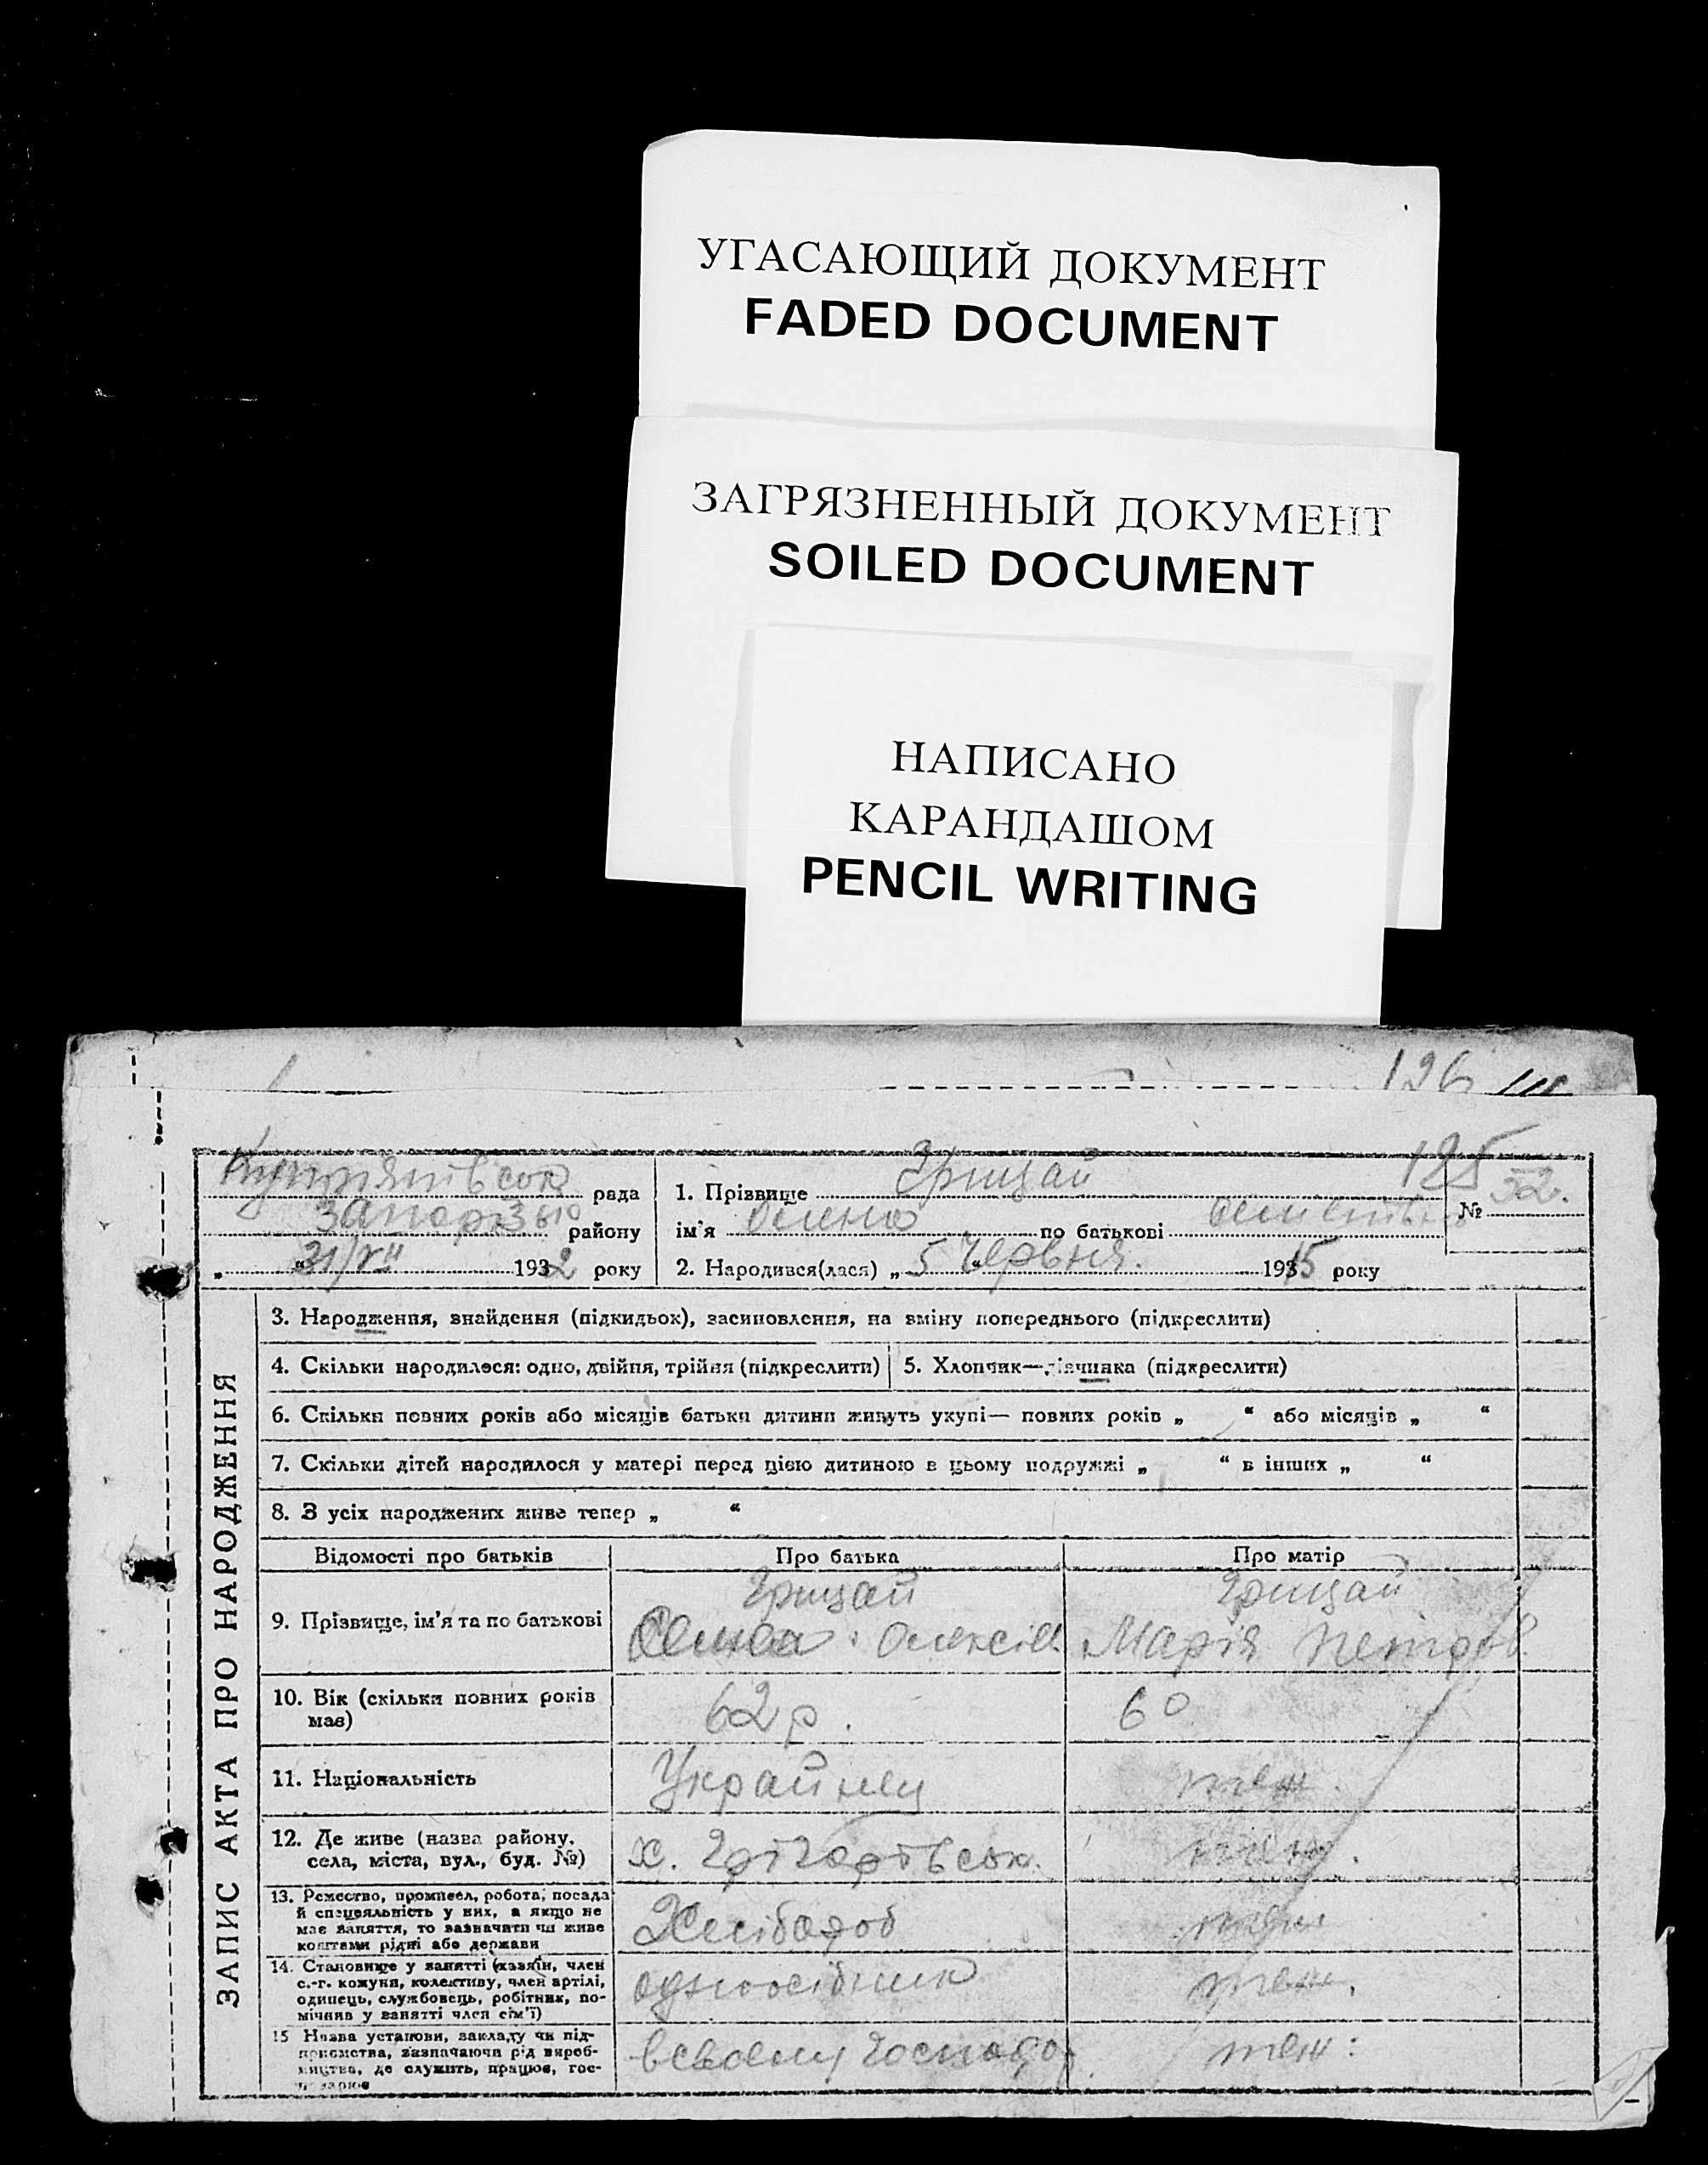 УГАСАЮЩИЙ ДОКУМЕНТ
FADED DOCUMENT
ЗАГРЯЗНЕННЫЙ ДОКУМЕНТ
SOILED DOCUMENT
НАПИСАНО
КАРАНДАШОМ
PENCIL WRITING
126
125
рада
району
„ 31/VII “ 1932 року
1. Прізвище Грицай
№ 52.
ім'я по батькові
2. Народився(лася) „ 5 “ Червня. 1915 року
ЗАПИС АКТА ПРО НАРОДЖЕННЯ
3. Народження, знайдення (підкидьок), засиновлення, на зміну попереднього (підкреслити)
4. Скільки народилося: одно, двійня, трійня (підкреслити)
5. Хлопчик—дівчинка (підкреслити)
6. Скільки повних років або місяців батьки дитини живуть укупі— повних років „ “ або місяців „ “
7. Скільки дітей народилося у матері перед цією дитиною в цьому подружжі „ “ в інших „ “
8. З усіх народжених живе тепер „ “
Відомості про батьків
Про батька
Про матір
9. Прізвище, ім'я та по батькові
Грицай
Олексів
Грицай
Марія Петров.
10. Вік (скільки повних років
має)
62 р.
60
11. Національність
Украйнец
теж.
12. Де живе (назва району,
села, міста, вул., буд. №)
х. Грігорівськ.
теж.
13. Ремество, промисел, робота, посада
й спеціяльність у них, а якщо не
має заняття, то зазначити чи живе
коштами рідні або держави
Хлібороб
теж
14. Становище у занятті (хазяїн, член
с.-г. комуни, колективу, член артілі,
одинець, службовець, робітник, по-
мічник у занятті член сім'ї)
одноосібник
теж.
15 Назва установи, закладу чи під-
приємства, зазначаючи рід вироб-
ництва, де служить, працює, гос-
подарює
всвоєму господар
теж: